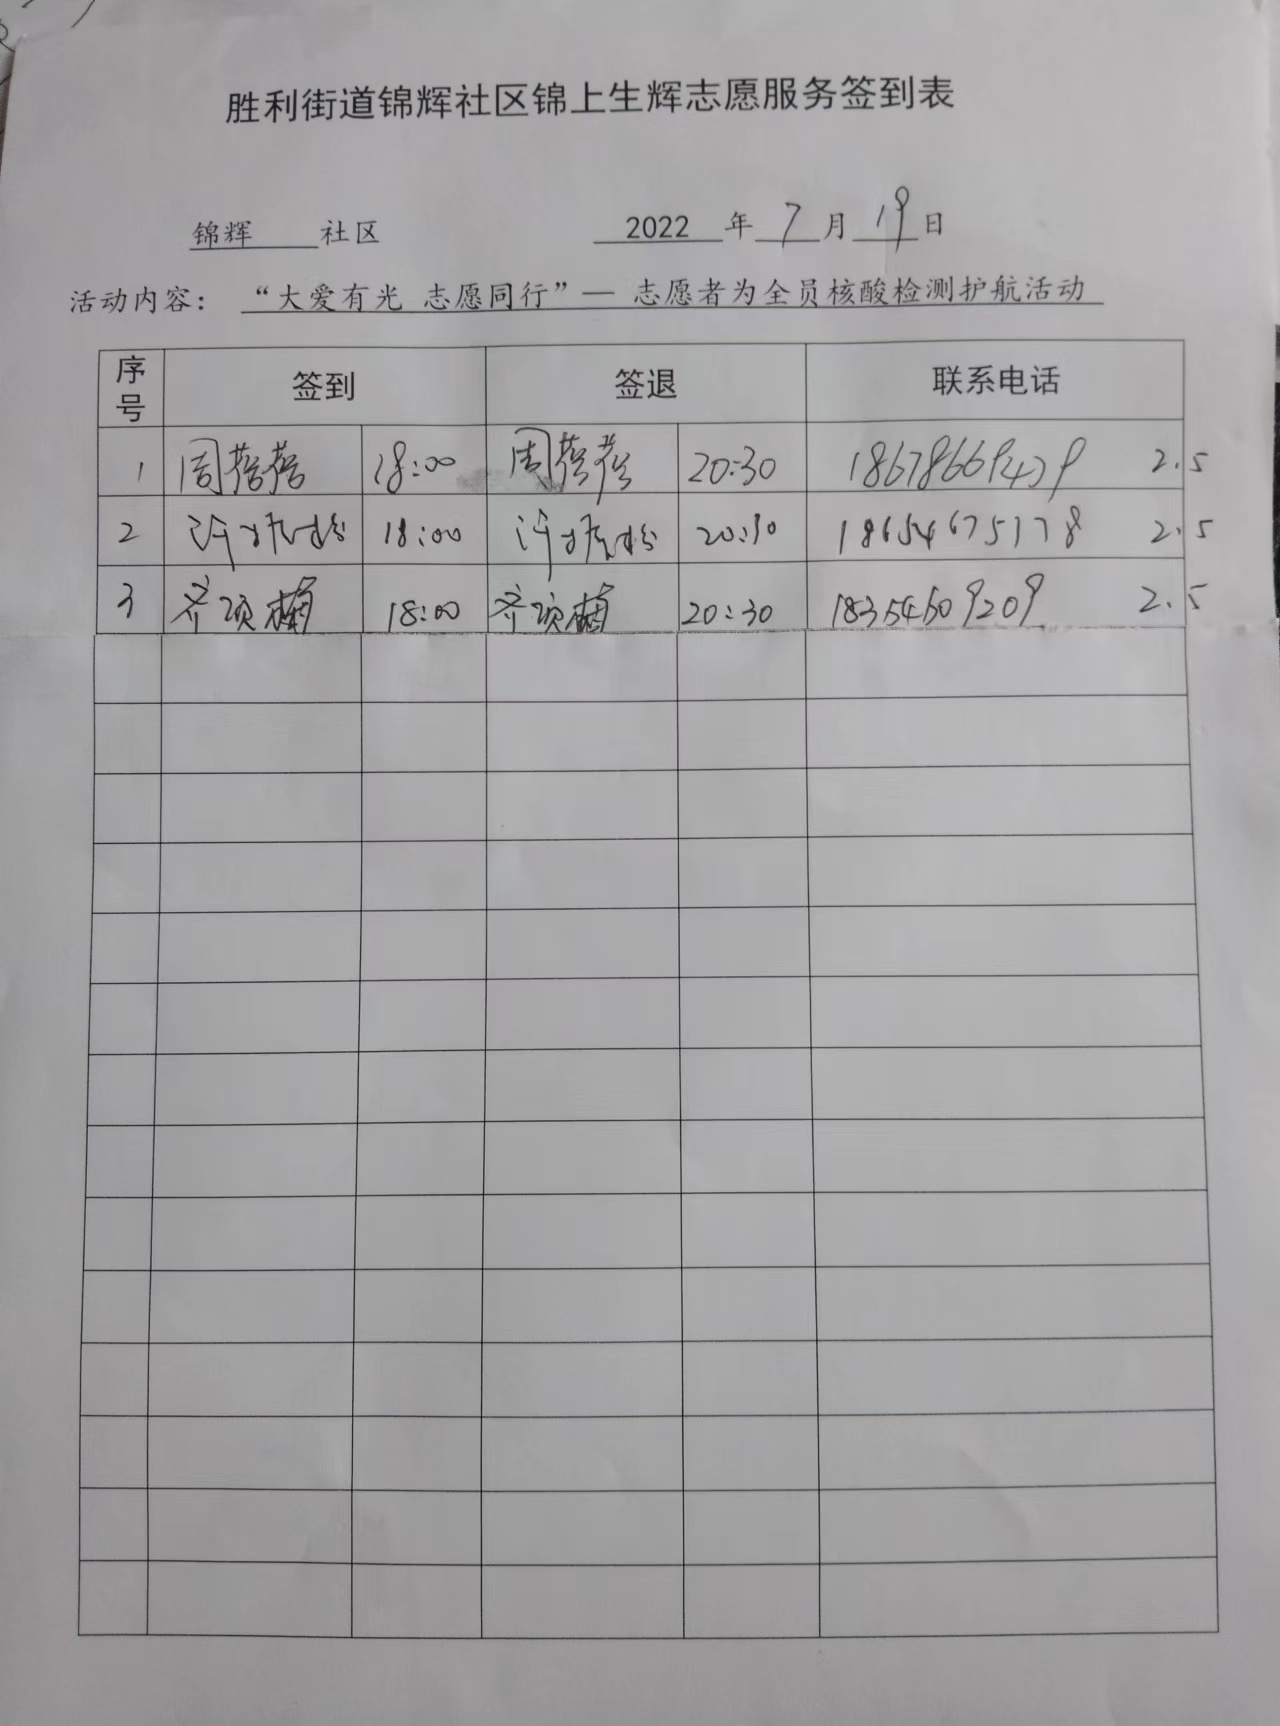 胜利街道锦辉社区锦上生辉志愿服务签到表
锦辉 社区 2022 年 7 月 19 日
活动内容： “大爱有光 志愿同行”— 志愿者为全员核酸检测护航活动
序号 签到 签退 联系电话
1 周蓓蓓 18:00 周蓓蓓 20:30 2.5
2 18:00 20:30 18654675178 2.5
3 齐 18:00 齐 20:30 18354609209 2.5